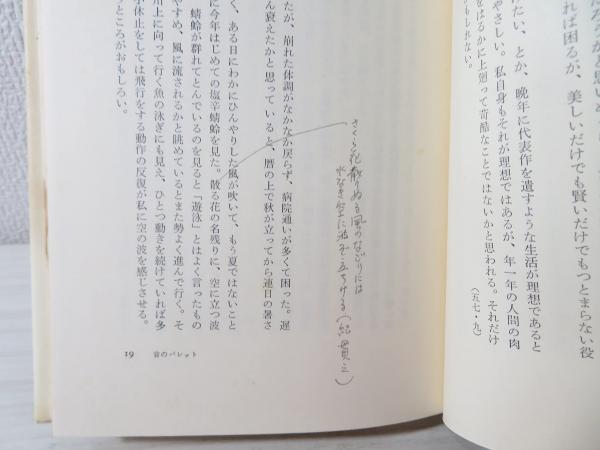 れば困るが、美しいだけでも賢いだけでもつとまらない役
けたい、とか、晩年に代表作を遺すような生活が理想であると
やさしい。私自身もそれが理想ではあるが、年一年の人間の肉
をはるかに上廻って苛酷なことではないかと思われる。それだけ
もしれない。
(五七・九)
さくら花散りぬる風のなごりには
水なき空に波ぞ立ちける(紀貫之)
たが、崩れた体調がなかなか戻らず、病院通いが多くて困った。遅
ん衰えたかと思っていると、暦の上で秋が立ってから連日の暑さ
く、ある日にわかにひんやりした風が吹いて、もう夏ではないこと
に今年はじめての塩辛蜻蛉を見た。散る花の名残りに、空に立つ波
蜻蛉が群れてとんでいるのを見ると「遊泳」とはよく言ったもの
やすめ、風に流されるかと眺めているとまた勢よく進んで行く。そ
川上に向って行く魚の泳ぎにも見え、ひとつ動きを続けていれば多
小休止をしては飛行をする動作の反復が私に空の波を感じさせる。
ところがおもしろい。
19 音のパレット